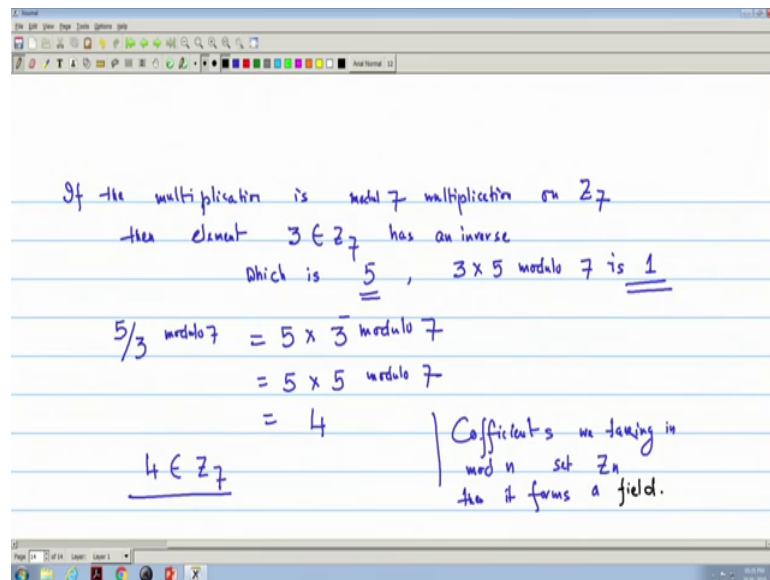 Journal
File Edit View Page Tools Options Help
Arial Normal 12
If the multiplication is modul 7 multiplication on Z7
then element 3 ∈ Z7 has an inverse
Which is 5 , 3 × 5 modulo 7 is 1
5/3 modulo 7 = 5 × 3⁻ modulo 7
= 5 × 5 modulo 7
= 4
4 ∈ Z7
Cofficients we taking in
mod n set Zn
then it forms a field.
Page 14 of 14 Layer: Layer 1